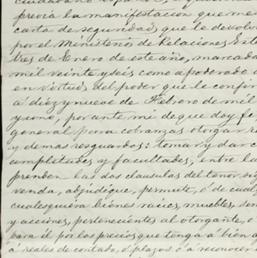 ciudadano
previa la manifestacion que me
carta de seguridad, que le devolvi
por el Ministerio de Relaciones Este
tres de Enero de este año, marcada
mil veinte y seis como apoderado
en virtud del poder que le confir
a diez y nueve de Febrero de mil
y uno, por ante mi de que doy fe
general para cobranzas otorgar re
y demas resguardos: tomar y dar c
cumpletades y facultades, entre la
prenden las dos clausulas del tenor si
venda, adjudique, permute, ó de cual
cualesquiera bienes raices, muebles, sem
y acciones, pertenecientes al otorgante, o
para él por los precios que tenga á bien a
á reales de contado, ó plazos ó á reconocer